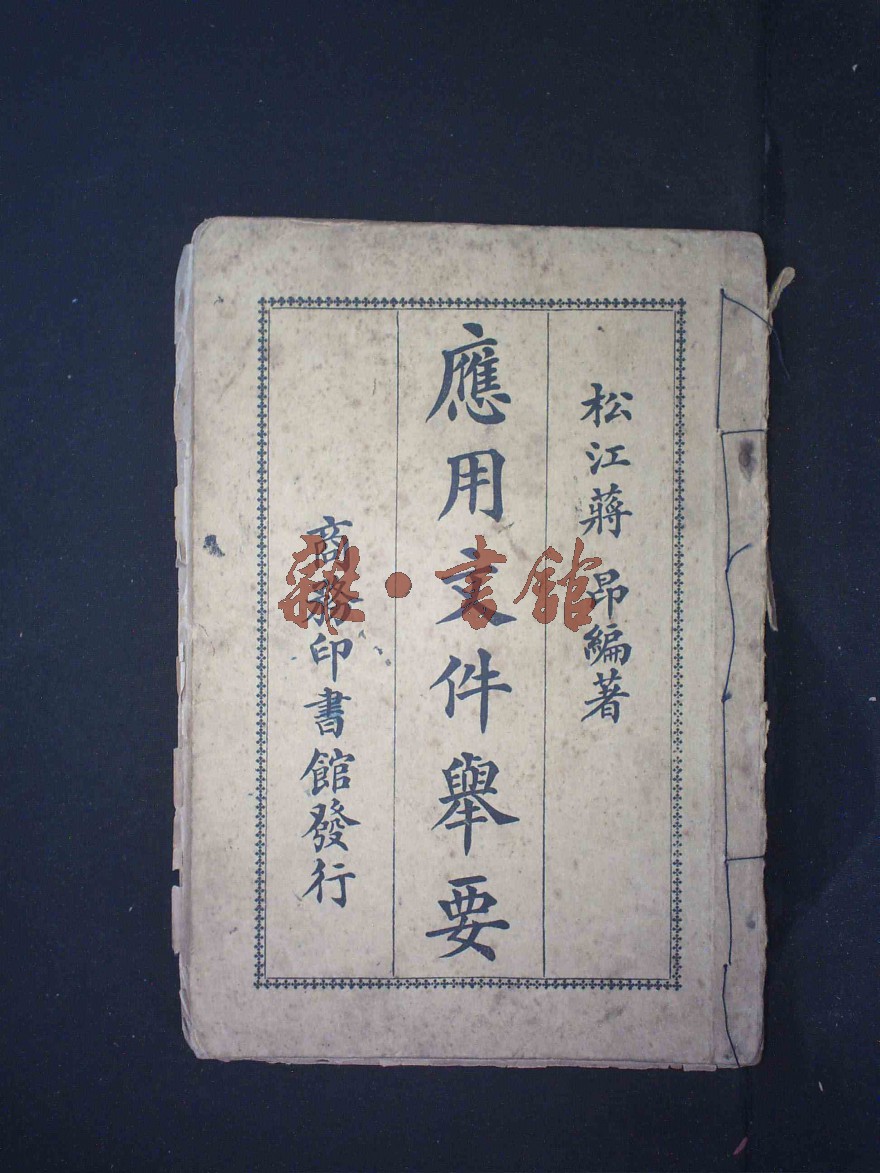 松江蔣昂編著
應用文件舉要
商務印書館發行